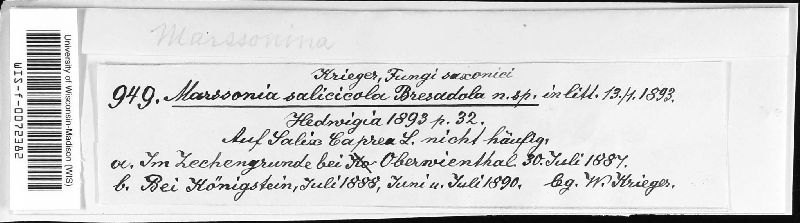 Marssonina
Krieger, Fungi saxonici
949. Marssonia salicicola Bresadola n. sp. in litt. 13./1. 1893.
Hedwigia 1893 p. 32.
Auf Salix Caprea L. nicht häufig.
a. Im Zechengrunde bei Oberwienthal. 30. Juli 1887.
b. Bei Königstein, Juli 1888, Juni u. Juli 1890. leg. W. Krieger.
University of Wisconsin-Madison (WIS)
WIS-f-0072382